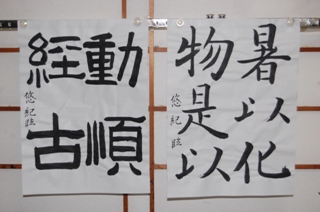 暑以化
物是以
悠紀臨
動順
経古
悠紀臨